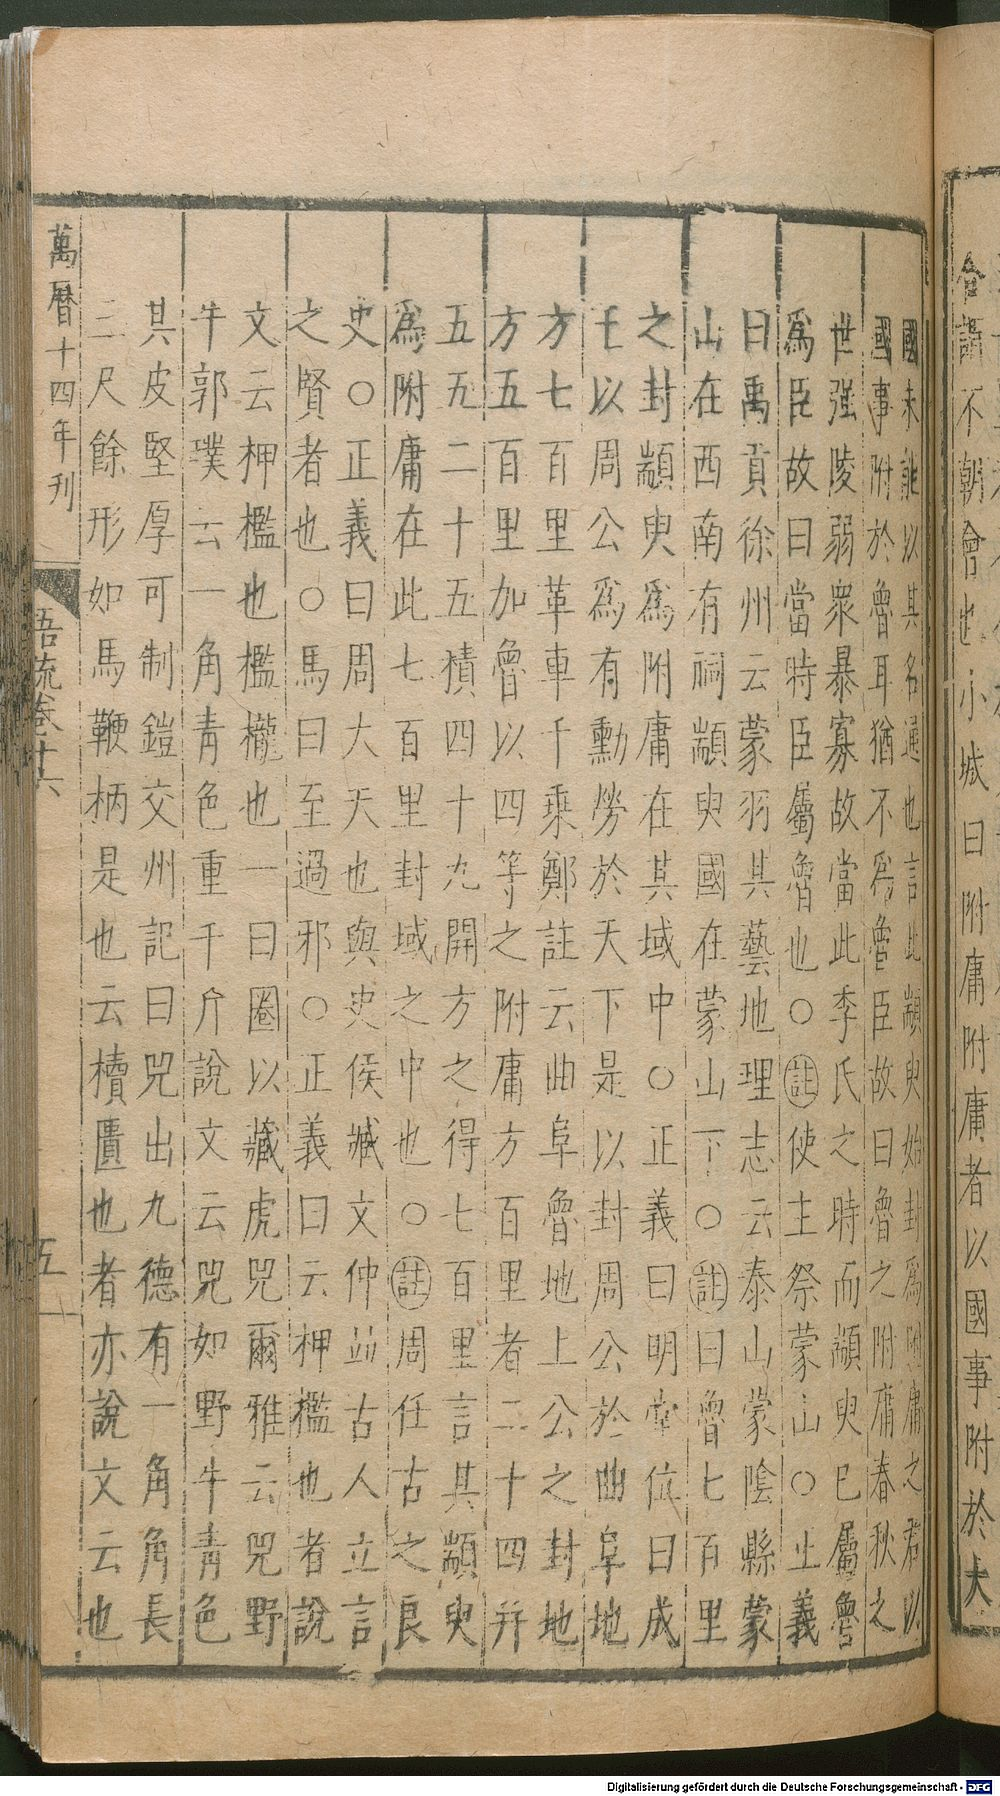 合謂不朝會也小城曰附庸附庸者以國事附於大
國未能以其名通也言此顓臾始封爲附庸之君以
國事附於魯耳猶不爲魯臣故曰魯之附庸春秋之
世强陵弱衆暴寡故當此季氏之時而顓臾已屬魯
爲臣故曰當時臣屬魯也○註使主祭蒙山○正義
曰禹貢徐州云蒙羽其藝地理志云泰山蒙陰縣蒙
山在西南有祠顓臾國在蒙山下○註曰魯七百里
之封顓臾爲附庸在其域中○正義曰明堂位曰成
王以周公爲有勳勞於天下是以封周公於曲阜地
方七百里革車千乘鄭註云曲阜魯地上公之封地
方五百里加魯以四等之附庸方百里者二十四并
五五二十五積四十九開方之得七百里言其顓臾
爲附庸在此七百里封域之中也○註周任古之良
史○正義曰周大夫也與史佚臧文仲竝古人立言
之賢者也○馬曰至過邪○正義曰云柙檻也者說
文云柙檻也檻櫳也一曰圈以藏虎兕爾雅云兕野
牛郭璞云一角青色重千斤說文云兕如野牛青色
其皮堅厚可制鎧交州記曰兕出九德有一角角長
三尺餘形如馬鞭柄是也云櫝匱也者亦說文云也
萬曆十四年刊
語疏卷十六
五
Digitalisierung gefördert durch die Deutsche Forschungsgemeinschaft - DFG